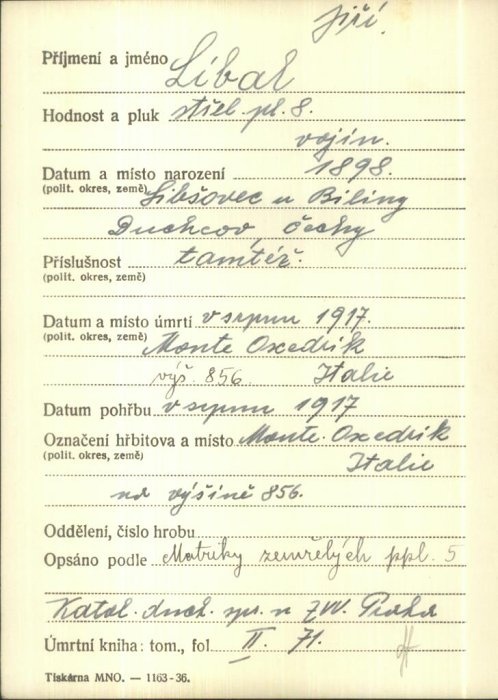 Jiří.
Příjmení a jméno Líbal
Hodnost a pluk střel. pl. 8.
vojín.
Datum a místo narození 1898.
(polit. okres, země) Libšovec u Biliny
Duchcov, Čechy
Příslušnost tamtéž.
(polit. okres, země)
Datum a místo úmrtí v srpnu 1917.
(polit. okres, země) Monte Oxedrik
výš. 856. Italie
Datum pohřbu v srpnu 1917
Označení hřbitova a místo Monte Oxedrik
(polit. okres, země) Italie
na výšině 856.
Oddělení, číslo hrobu
Opsáno podle Matriky zemřelých ppl. 5
Katol. duch. spr. u ZVV. Praha
Úmrtní kniha: tom., fol. II. 71.
Tiskárna MNO. — 1163-36.